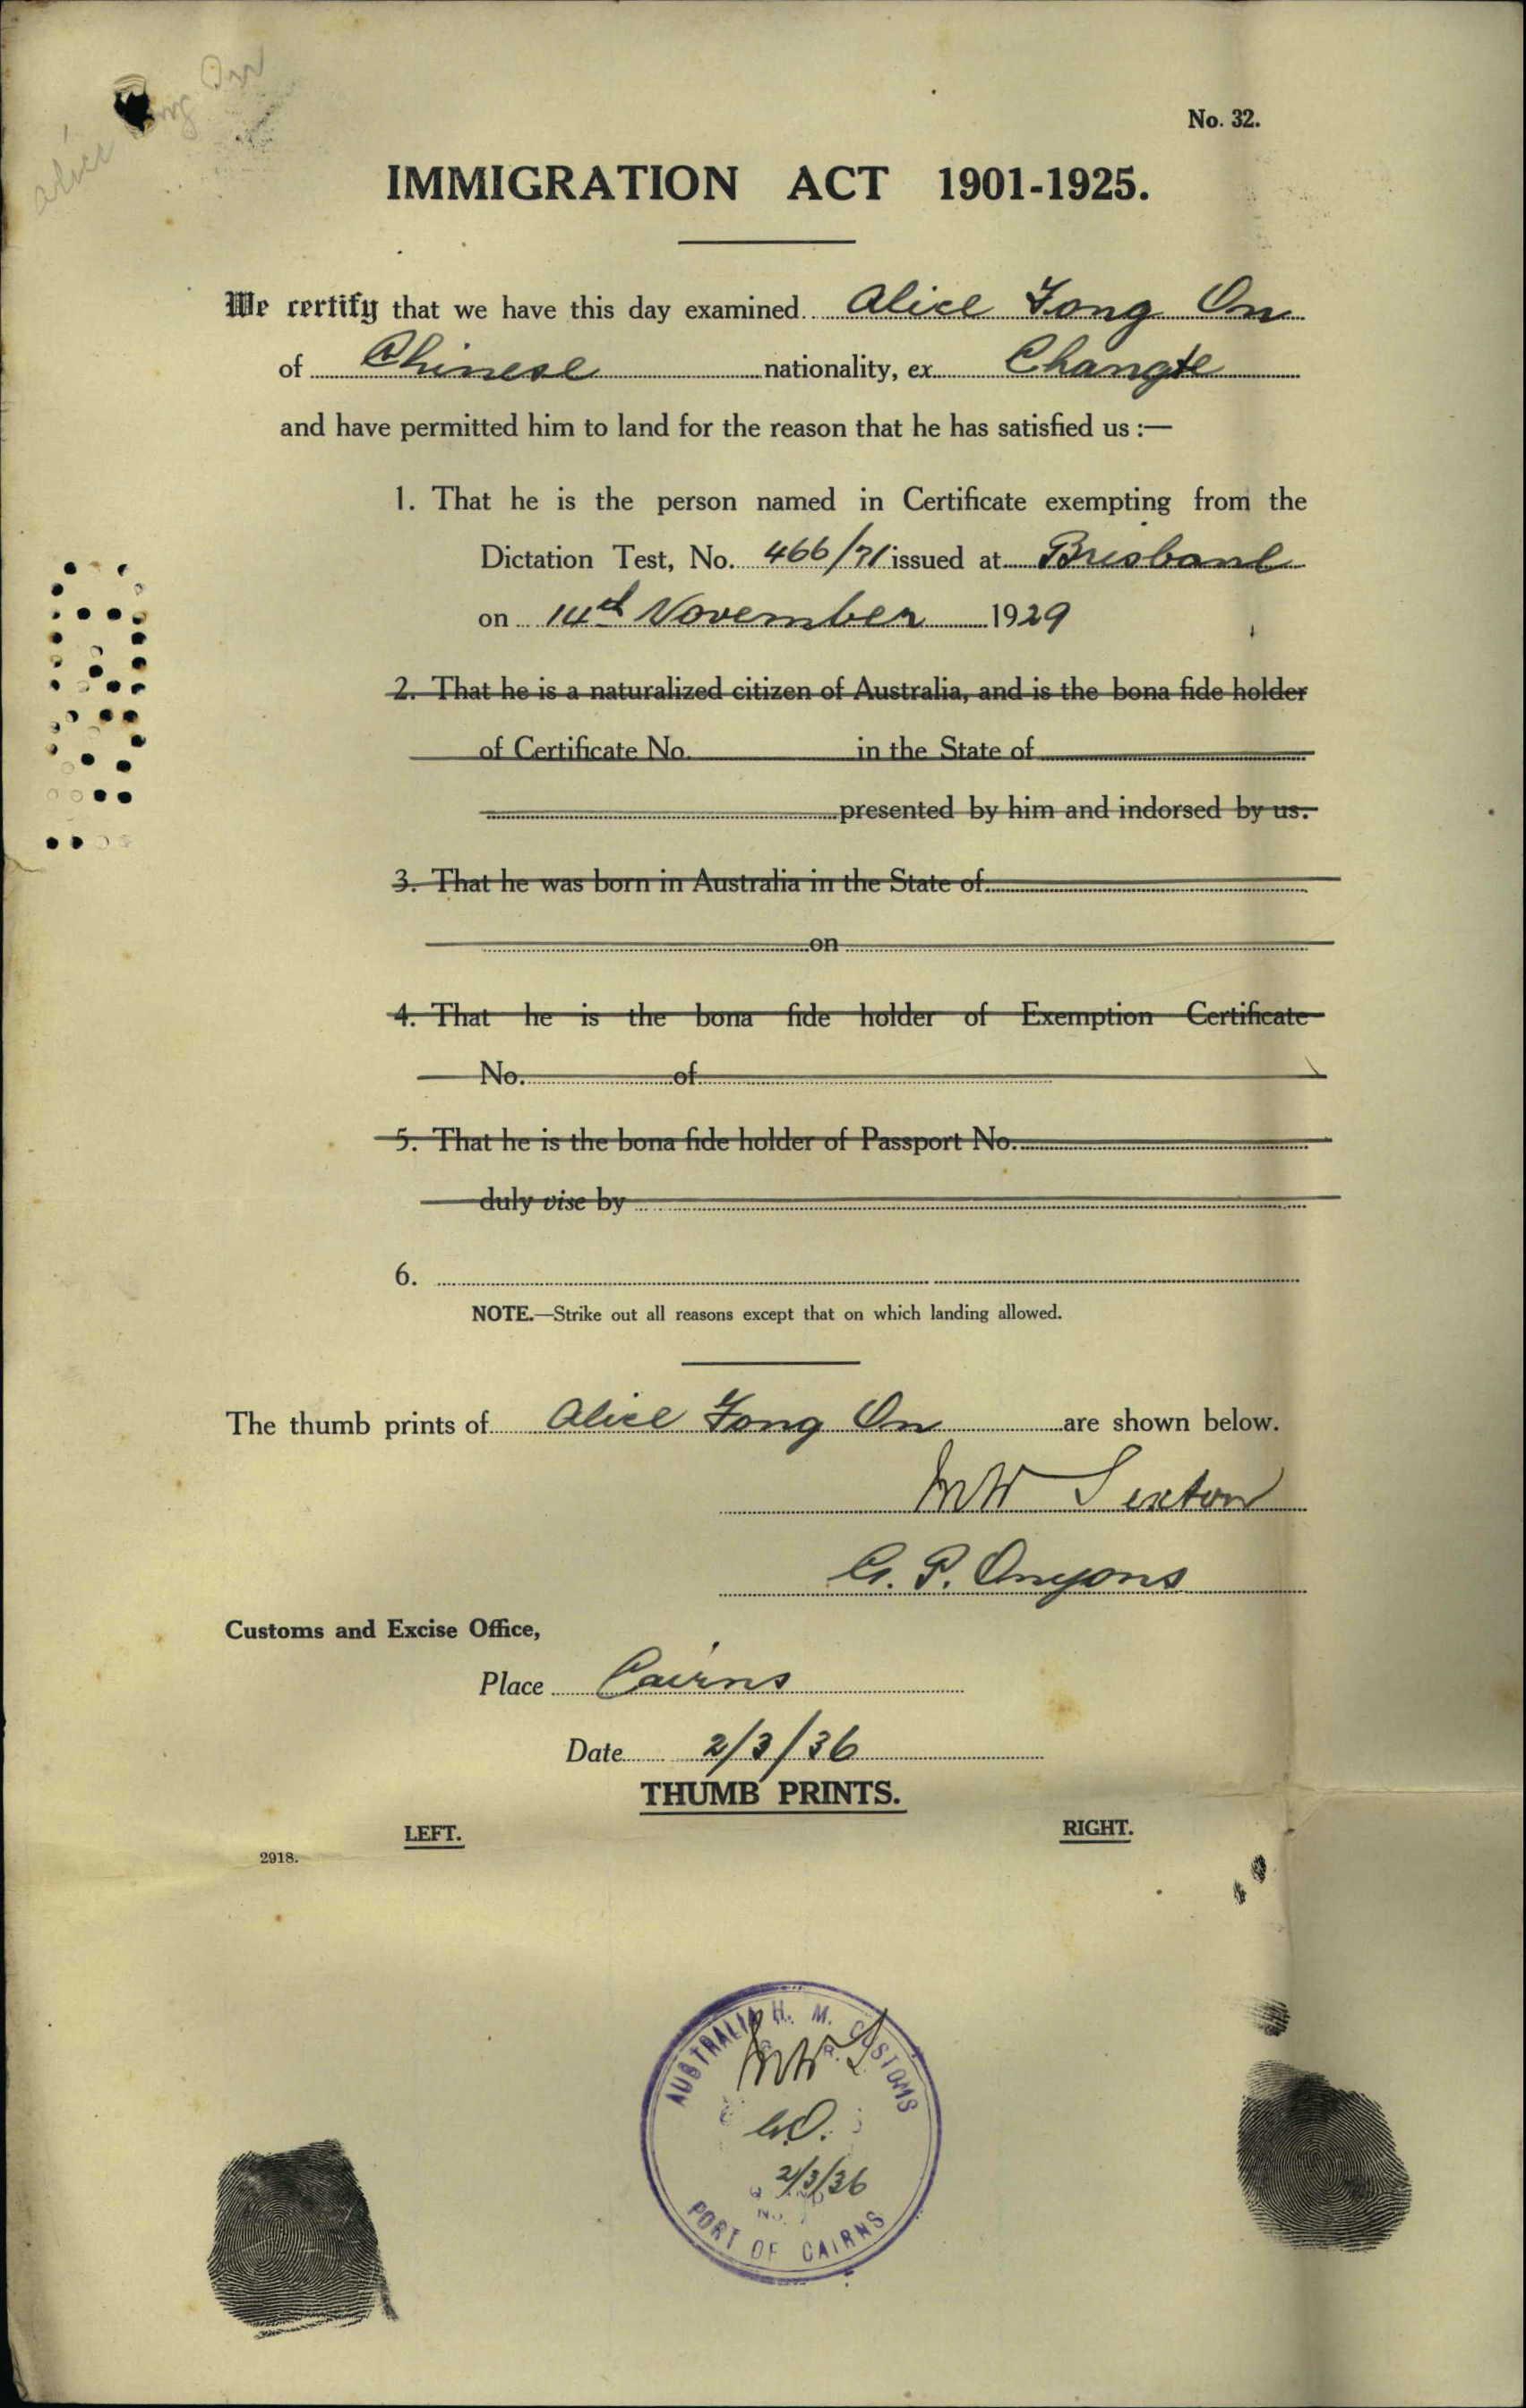 Alice Fong On
No. 32.
IMMIGRATION ACT 1901-1925.
We certify that we have this day examined Alice Fong On
of Chinese nationality, ex Changte
and have permitted him to land for the reason that he has satisfied us :—
1. That he is the person named in Certificate exempting from the
Dictation Test, No. 466/71 issued at Brisbane
on 14th November 1929
2. That he is a naturalized citizen of Australia, and is the bona fide holder
of Certificate No. in the State of
presented by him and indorsed by us.
3. That he was born in Australia in the State of
on
4. That he is the bona fide holder of Exemption Certificate
No. of
5. That he is the bona fide holder of Passport No.
duly vise by
6.
NOTE.—Strike out all reasons except that on which landing allowed.
The thumb prints of Alice Fong On are shown below.
MW Sexton
G. P. Onyons
Customs and Excise Office,
Place Cairns
Date 2/3/36
THUMB PRINTS.
LEFT. RIGHT.
2918.
AUSTRALIA H. M. CUSTOMS
MWS
G.O.
2/3/36
No.
PORT OF CAIRNS